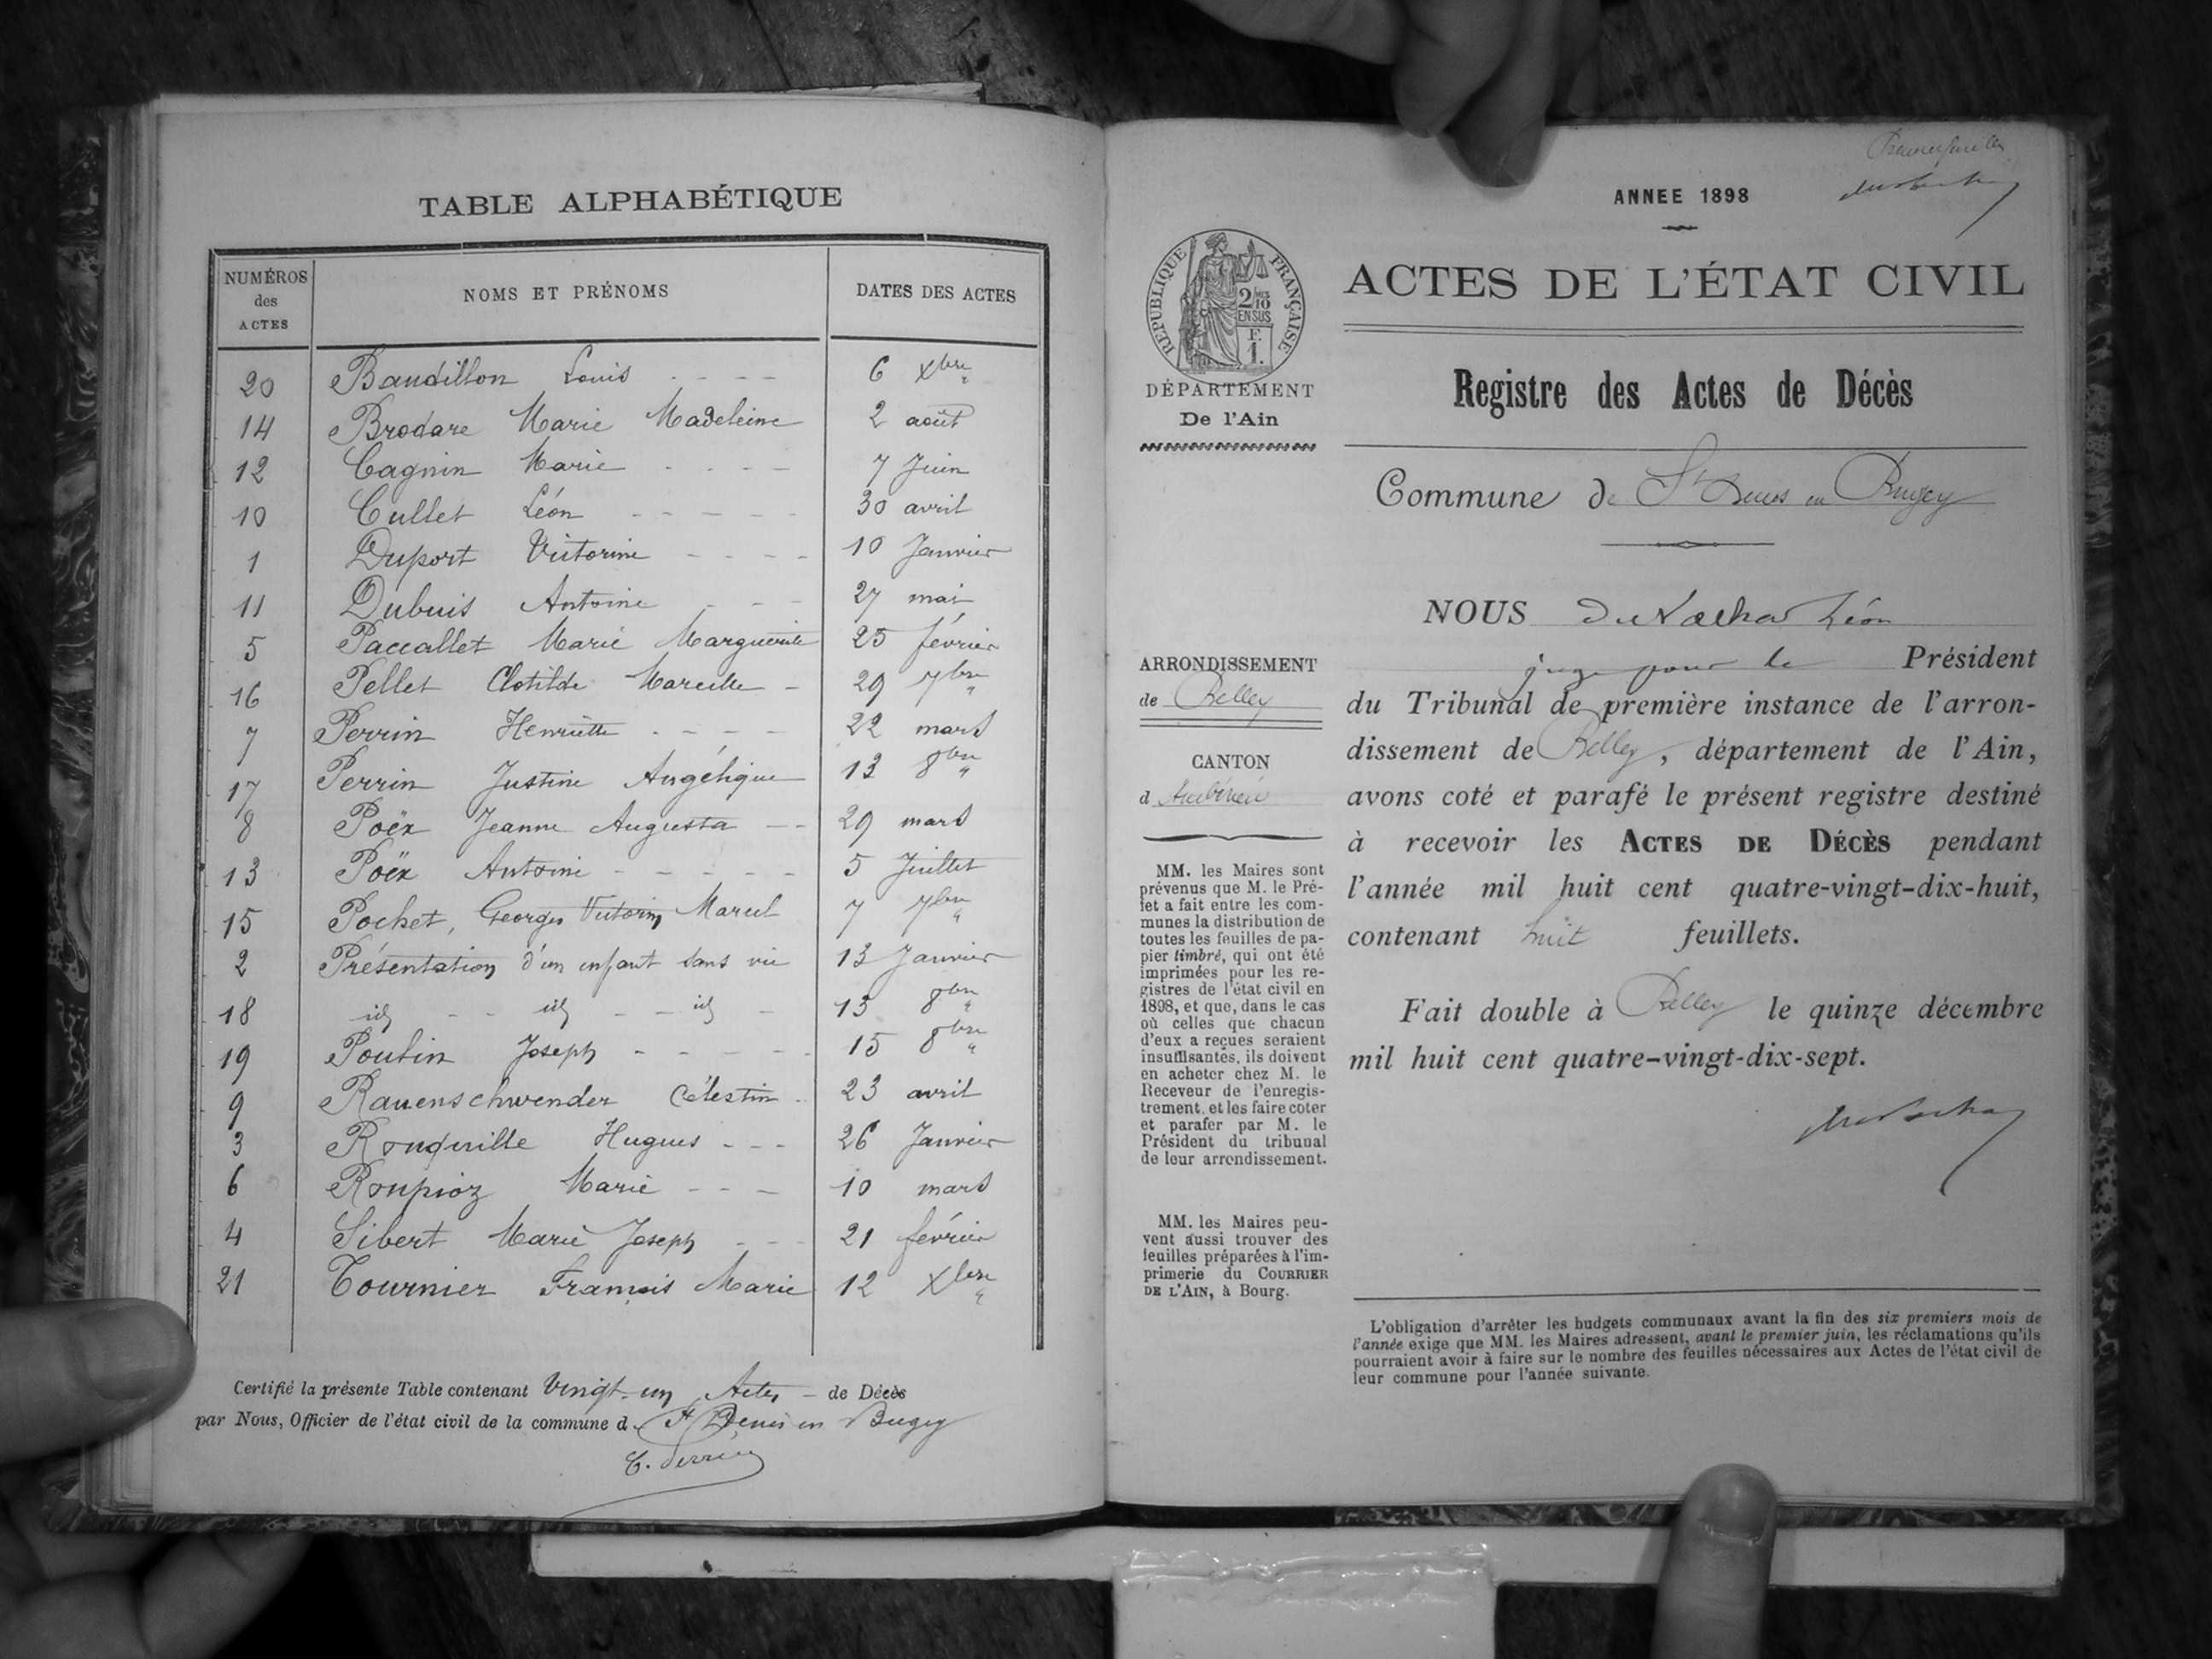 TABLE ALPHABÉTIQUE
NUMÉROS des ACTES NOMS ET PRÉNOMS DATES DES ACTES
20 Baudillon Louis 6 Xbre
14 Brodare Marie Madeleine 2 août
12 Cagnin Marie 7 Juin
10 Cullet Léon 30 avril
1 Duport Victorine 10 Janvier
11 Dubuis Antoine 27 mai
5 Paccallet Marie Marguerite 25 février
16 Pellet Clotilde Marcelle 29 7bre
7 Perrin Henriette 22 mars
17 Perrin Justine Angélique 13 8bre
8 Poëx Jeanne Augusta 29 mars
13 Poëx Antoine 5 Juillet
15 Pochet, Georges Victorin Marcel 7 7bre
2 Présentation d'un enfant sans vie 13 Janvier
18 id - - id - - id - 15 8bre
19 Poutin Joseph 15 8bre
9 Rauenschwender Célestin 23 avril
3 Rouquille Hugues 26 Janvier
6 Roupioz Marie 10 mars
4 Sibert Marie Joseph 21 février
21 Tournier François Marie 12 Xbre
Certifié la présente Table contenant Vingt-un Actes - de Décès
par Nous, Officier de l'état civil de la commune d St Denis en Bugey
C. Perrin
ANNEE 1898
REPUBLIQUE FRANÇAISE
2/10 EN SUS
F. 1.
DÉPARTEMENT
De l'Ain
ARRONDISSEMENT
de Belley
CANTON
d
MM. les Maires sont
prévenus que M. le Pré-
fet a fait entre les com-
munes la distribution de
toutes les feuilles de pa-
pier timbré, qui ont été
imprimées pour les re-
gistres de l'état civil en
1898, et que, dans le cas
où celles que chacun
d'eux a reçues seraient
insuffisantes, ils doivent
en acheter chez M. le
Receveur de l'enregis-
trement, et les faire coter
et parafer par M. le
Président du tribunal
de leur arrondissement.
MM. les Maires peu-
vent aussi trouver des
feuilles préparées à l'im-
primerie du COURRIER
DE L'AIN, à Bourg.
ACTES DE L'ÉTAT CIVIL
Registre des Actes de Décès
Commune de St Denis en Bugey
NOUS Léon
juge pour le Président
du Tribunal de première instance de l'arron-
dissement de Belley, département de l'Ain,
avons coté et parafé le présent registre destiné
à recevoir les ACTES DE DÉCÈS pendant
l'année mil huit cent quatre-vingt-dix-huit,
contenant huit feuillets.
Fait double à Belley le quinze décembre
mil huit cent quatre-vingt-dix-sept.
L'obligation d'arrêter les budgets communaux avant la fin des six premiers mois de
l'année exige que MM. les Maires adressent, avant le premier juin, les réclamations qu'ils
pourraient avoir à faire sur le nombre des feuilles nécessaires aux Actes de l'état civil de
leur commune pour l'année suivante.